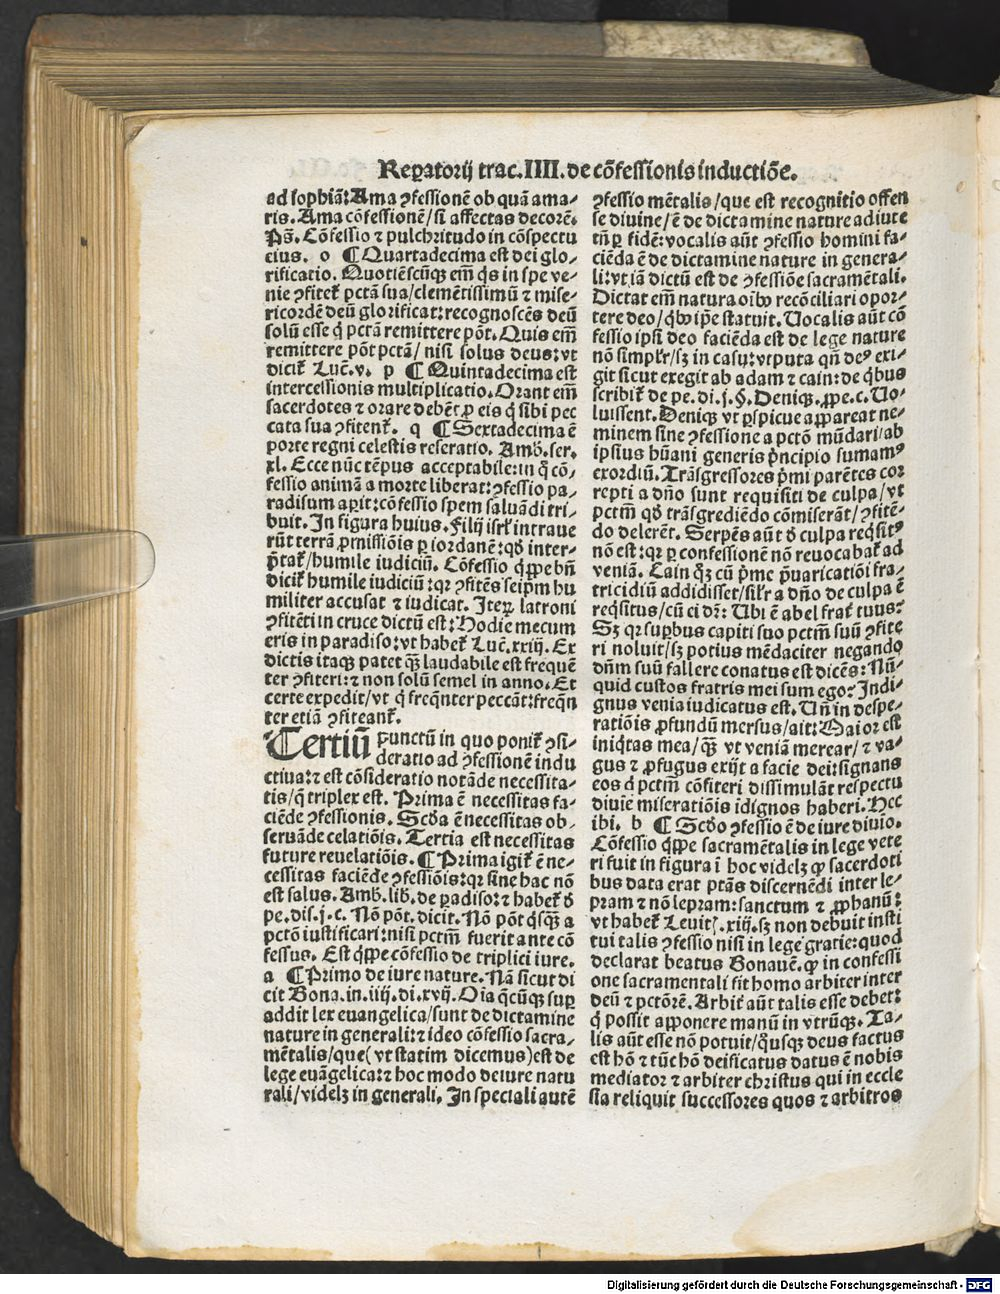 Reꝑatorij trac.IIII.de cõfessionis inductiõe.
ad sophiã: Ama ꝯfessionẽ ob quã ama-
ris. Ama cõfessionẽ/si affectas decorẽ.
Ps̃. Cõfessio ⁊ pulchritudo in cõspectu
eius. o ¶ Quartadecima est dei glo-
rificatio. Quotiẽscũqꝫ em̃ q̃s in spe ve-
nie ꝯfitet᷑ pctã sua/clemẽtissimũ ⁊ mise-
ricordẽ deũ glorificat: recognoscẽs deũ
solũ esse q̃ pctã remittere põt. Quis em̃
remittere põt pctã/ nisi solus deus: vt
dicit᷑ Luc̃.v. p ¶ Quintadecima est
intercessionis multiplicatio. Orant em̃
sacerdotes ⁊ orare debẽt ꝓ eis q̃ sibi pec
cata sua ꝯfitent᷑. q ¶ Sextadecima ẽ
porte regni celestis reseratio. Amb̃. ser.
xl. Ecce nũc tẽpus acceptabile: in q̃ cõ-
fessio animã a morte liberat: ꝯfessio pa-
radisum aꝑit: cõfessio spem saluãdi tri-
buit. In figura huius. Filij isrl̃ intraue
rũt terrã ꝓmissiõis ꝑ iordanẽ: qd̃ inter-
p̃tat᷑/humile iudiciũ. Cõfessio q̃ppe bñ
dicit᷑ humile iudiciũ: qꝛ ꝯfitẽs seip̃m hu
militer accusat ⁊ iudicat. Iteꝝ latroni
ꝯfitẽti in cruce dictũ est: Hodie mecum
eris in paradiso: vt habet᷑ Luc̃. xxiij. Ex
dictis itaqꝫ patet q̃ꝫ laudabile est frequẽ
ter ꝯfiteri: ⁊ non solũ semel in anno. Et
certe expedit/vt q̃ freqñter peccãt: freqñ
ter etiã ꝯfiteant᷑.
Tertiũ punctũ in quo ponit᷑ ꝯsi-
deratio ad ꝯfessionẽ indu
ctiua: ⁊ est cõsideratio notãde necessita-
tis/q̃ triplex est. Prima ẽ necessitas fa-
ciẽde ꝯfessionis. Scd̃a ẽ necessitas ob-
seruãde celatiõis. Tertia est necessitas
future reuelatiõis. ¶ Prima igit᷑ ẽ ne-
cessitas faciẽde ꝯfessiõis: qꝛ sine hac nõ
est salus. Amb̃. lib̃. de ꝑadiso: ⁊ habet᷑ d̃
pe. dis. j. c. Nõ põt. dicit. Nõ põt q̃sqꝫ a
pctõ iustificari: nisi pctm̃ fuerit ante cõ
fessus. Est q̃ppe cõfessio de triplici iure.
a ¶ Primo de iure nature. Nã sicut di
cit Bona. in. iiij. di. xvij. Oĩa q̃cũqꝫ suꝑ
addit lex euangelica/sunt de dictamine
nature in generali: ⁊ ideo cõfessio sacra-
mẽtalis/que( vt statim dicemus)est de
lege euãgelica: ⁊ hoc modo de iure natu
rali/videlꝫ in generali. In speciali autẽ
ꝯfessio mẽtalis/que est recognitio offen
se diuine/ẽ de dictamine nature adiute
tñ ꝑ fidẽ: vocalis aũt ꝯfessio homini fa-
ciẽda ẽ de dictamine nature in genera-
li: vt iã dictũ est de ꝯfessiõe sacramẽtali.
Dictat em̃ natura oĩbꝰ recõciliari opor-
tere deo/q̃bꝰ ip̃e statuit. Vocalis aũt cõ
fessio ipsi deo faciẽda est de lege nature
nõ simpl̃r/sꝫ in casu: vtputa qñ deꝰ exi-
git sicut exegit ab adam ⁊ cain: de q̃bus
scribit᷑ de pe. di. j. §. Deniqꝫ. ꝓpe. c. Vo-
luissent. Deniqꝫ vt ꝑspicue appareat ne-
minem sine ꝯfessione a pctõ mũdari/ab
ipsius hũani generis p̃ncipio sumamꝰ
exordiũ. Trãsgressores p̃mi parẽtes cor
repti a dño sunt requisiti de culpa/vt
pctm̃ qd̃ trãsgrediẽdo cõmiserãt/ꝯfitẽ-
do delerẽt. Serpẽs aũt d̃ culpa req̃sitꝰ
nõ est: qꝛ ꝑ confessionẽ nõ reuocabat᷑ ad
veniã. Cain q̃ꝫ cũ p̃me p̃uaricatiõi fra-
tricidiũ addidisset/sil̃r a dño de culpa ẽ
req̃situs/cũ ei dr̃: Vbi ẽ abel frat᷑ tuus?
Sꝫ qꝛ suꝑbus capiti suo pctm̃ suũ ꝯfite
ri noluit/sꝫ potius mẽdaciter negando
dñm suũ fallere conatus est dicẽs: Nũ-
quid custos fratris mei sum ego? Indi-
gnus venia iudicatus est. Vñ in despe-
ratiõis ꝓfundũ mersus/ait: Maior est
iniq̃tas mea/q̃ꝫ vt veniã merear/ ⁊ va-
gus ⁊ ꝓfugus exijt a facie dei: signans
eos q̃ pctm̃ cõfiteri dissimulãt respectu
diuĩe miseratiõis idignos haberi. Hec
ibi. b ¶ Scd̃o ꝯfessio ẽ de iure diuĩo.
Cõfessio q̃ppe sacramẽtalis in lege vete
ri fuit in figura ĩ hoc videlꝫ ꝙ sacerdoti
bus data erat ptãs discernẽdi inter le-
pram ⁊ nõ lepram: sanctum ⁊ ꝓphanũ:
vt habet᷑ Leuit̃. xiij. sꝫ non debuit insti
tui talis ꝯfessio nisi in lege gratie: quod
declarat beatus Bonauẽ. ꝙ in confessi
one sacramentali fit homo arbiter inter
deũ ⁊ pctõrẽ. Arbit᷑ aũt talis esse debet:
q̃ possit apponere manũ in vtrũqꝫ. Ta-
lis aũt esse nõ potuit/q̃usqꝫ deus factus
est hõ ⁊ tũc hõ deificatus datus ẽ nobis
mediator ⁊ arbiter christus qui in eccle
sia reliquit successores quos ⁊ arbitros
Digitalisierung gefördert durch die Deutsche Forschungsgemeinschaft - DFG